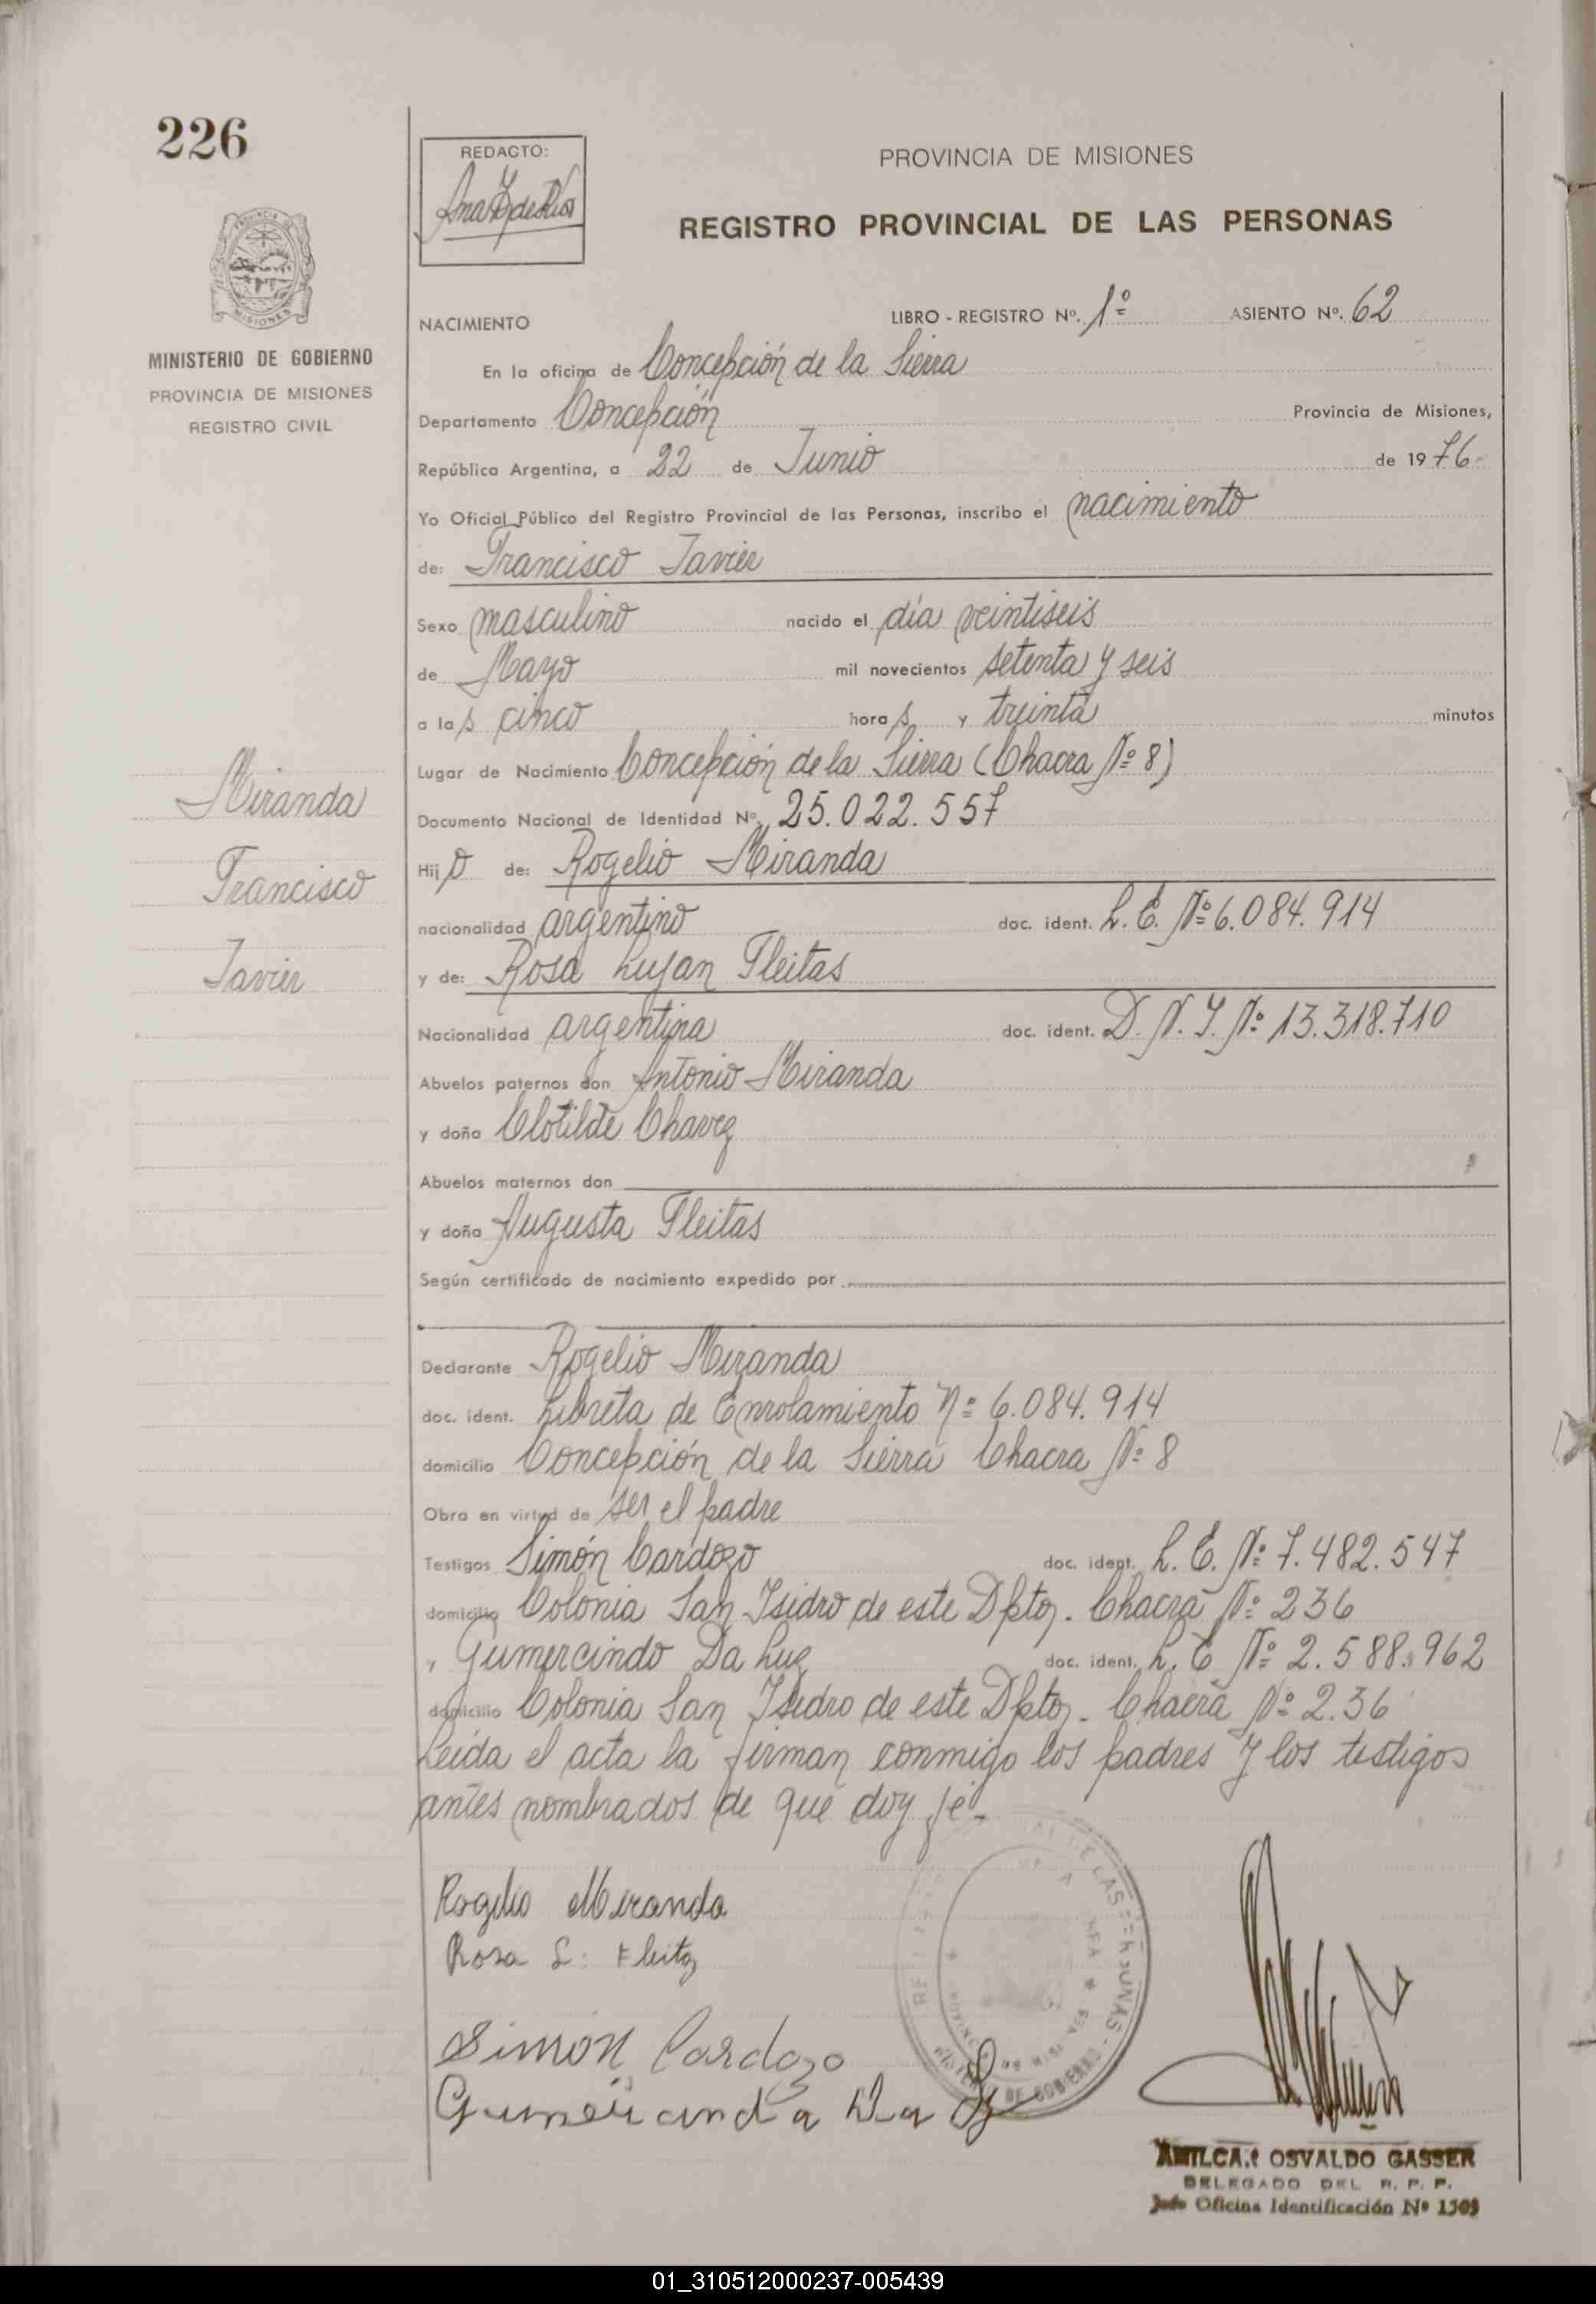 226
REDACTO:
PROVINCIA DE MISIONES
REGISTRO PROVINCIAL DE LAS PERSONAS
MISIONES
MINISTERIO DE GOBIERNO
PROVINCIA DE MISIONES
REGISTRO CIVIL
NACIMIENTO LIBRO - REGISTRO Nº. 1º ASIENTO Nº. 62
En la oficina de Concepción de la Sierra
Departamento Concepción Provincia de Misiones,
República Argentina, a 22 de Junio de 1976-
Yo Oficial Público del Registro Provincial de las Personas, inscribo el nacimiento
de: Francisco Javier
Sexo masculino nacido el día veintiseis
de Mayo mil novecientos setenta y seis
a las cinco horas y treinta minutos
Lugar de Nacimiento Concepción de la Sierra (Chacra Nº 8)
Documento Nacional de Identidad Nº. 25.022.557
Hijo de: Rogelio Miranda
nacionalidad argentino doc. ident. L. E. Nº 6.084.914
y de: Rosa Lujan Fleitas
Nacionalidad argentina doc. ident. D. N. I. Nº 13.318.710
Abuelos paternos don Antonio Miranda
y doña Clotilde Chavez
Abuelos maternos don
y doña Augusta Fleitas
Según certificado de nacimiento expedido por
Declarante Rogelio Miranda
doc. ident. Libreta de Enrolamiento Nº 6.084.914
domicilio Concepción de la Sierra Chacra Nº 8
Obra en virtud de ser el padre
Testigos Simón Cardozo doc. ident. L. E. Nº 7.482.547
domicilio Colonia San Isidro de este Dpto. Chacra Nº 236
y Gumercindo Da Luz doc. ident. L. E Nº 2.588.962
domicilio Colonia San Isidro de este Dpto. Chacra Nº 2.36
Leída el acta la firman conmigo los padres y los testigos
antes nombrados de que doy fé.
Miranda
Francisco
Javier
Rogelio Miranda
Rosa L. Fleitas
Simón Cardozo
AMILCAR OSVALDO GASSER
DELEGADO DEL R. P. P.
Jefe Oficina Identificación Nº 1509
01_310512000237-005439